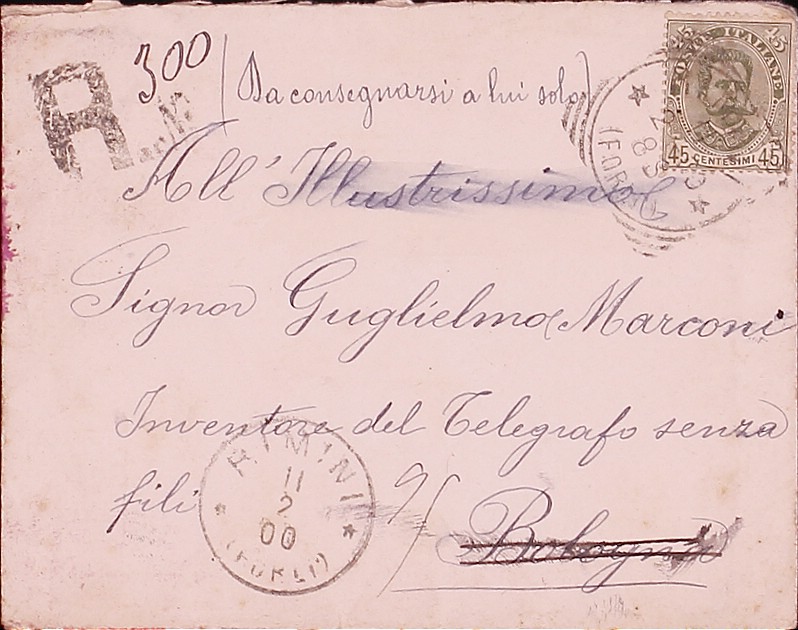 R
300
(Da consegnarsi a lui solo)
45 45
POSTE ITALIANE
45 CENTESIMI 45
All'Illustrissimo
Signor Guglielmo Marconi
Inventore del Telegrafo senza
fili
RIMINI
11
2
00
(FORLI')
Bologna